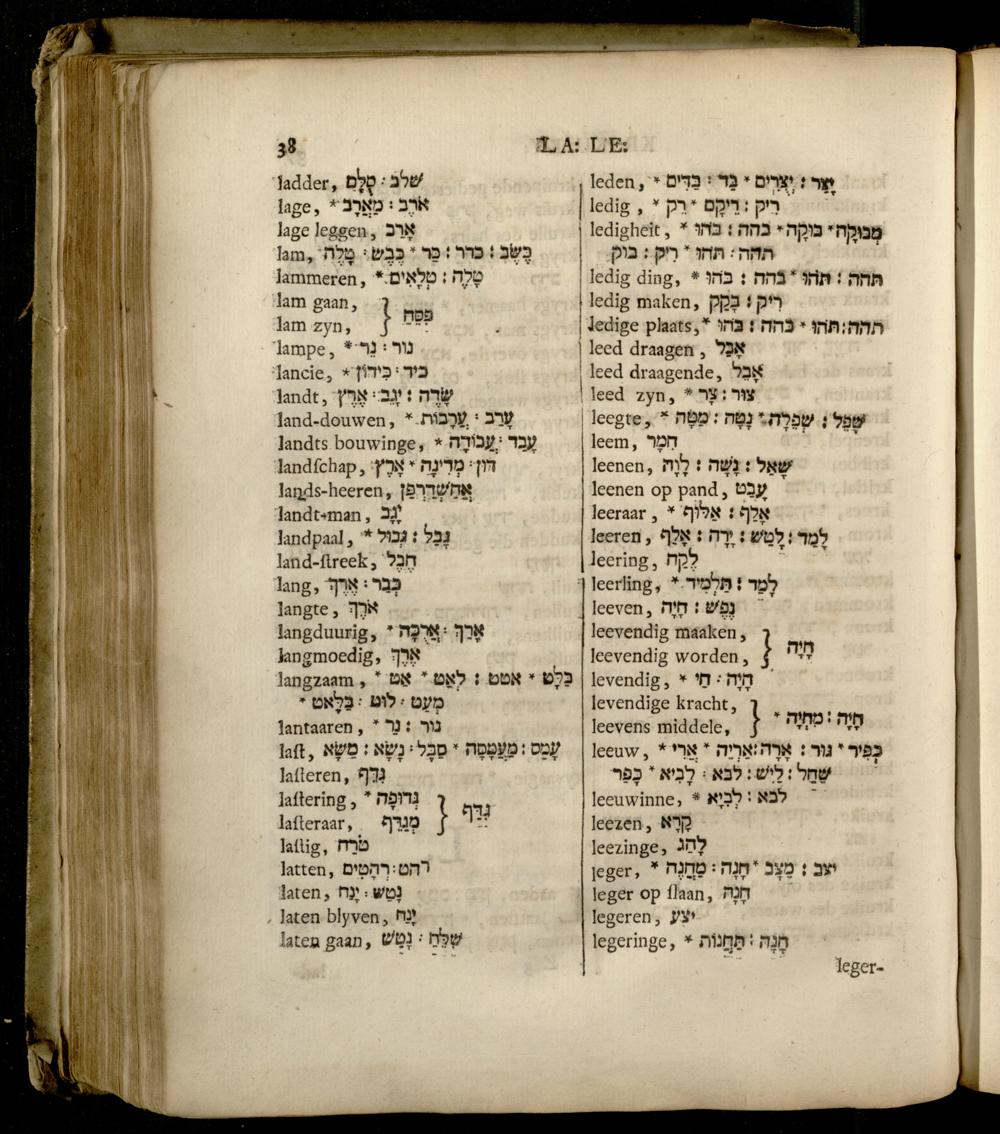 38 LA: LE:
ladder, שלב : סֻלָּם
lage, * אֹרֶב : מַאֲרָב
lage leggen, אָרַב
lam, כֶּשֶׂב : כרר : כַּר * כֶּבֶשׂ : טָלֶה
lammeren, * טָלֶה : טְלָאִים
lam gaan, } פִּסֵּחַ
lam zyn,
lampe, * נור : נֵר
lancie, * כיד : כִּידוֹן
landt, שָׂדֶה : יָגֵב : אֶרֶץ
land-douwen, * עָרַב : עֲרָבוֹת
landts bouwinge, * עָבַד : עֲבוֹדָה
landſchap, דון : מְדִינָה * אֶרֶץ
lands-heeren, אֲחַשְׁדַּרְפַּן
landt-man, יָגֵב
landpaal, * גָּבַל : גְּבוּל
land-ſtreek, חֶבֶל
lang, כְּבַר : אֶרֶךְ
langte, אֹרֶךְ
langduurig, * אָרַךְ : אֲרֻכָּה
langmoedig, אֶרֶךְ
langzaam, * בַּלָּט * אטט : לְאַט * אַט
* מְעַט : לוט : בַּלָּאט
lantaaren, * נור : נֵר
laſt, עָמַס : מַעֲמָסָה * סֵבֶל : נָשָׂא : מַשָּׂא
laſteren, גִּדֵּף
laſtering, * גְּדוּפָה } גִּדֵּף
laſteraar, מְגַדֵּף
laſtig, טֹרַח
latten, רהט : רְהָטִים
laten, נָטַשׁ : יָנַח
laten blyven, יָנַח
laten gaan, שִׁלַּח : נָטַשׁ
leden, * יָצַר : יְצֻרִים * בַּד : בַּדִּים
ledig, * ריק : רֵיקָם * רֵק
ledigheit, * מְבוּקָה * בּוּקָה * בהה : בֹּהוּ
תהה : תֹּהוּ * רִיק : בוק
ledig ding, * תהה : תֹּהוּ * בהה : בֹּהוּ
ledig maken, רִיק : בָּקַק
ledige plaats, * תהה : תֹּהוּ * בהה : בֹּהוּ
leed draagen, אָבַל
leed draagende, אָבֵל
leed zyn, * צור : צָר
leegte, * שָׁפֵל : שְׁפֵלָה * נָטָה : מַטָּה
leem, חֹמֶר
leenen, שָׁאַל : נָשָׁה : לָוָה
leenen op pand, עָבַט
leeraar, * אָלַף : אַלּוּף
leeren, לָמַד : לָטַשׁ : יָרָה : אָלַף
leering, לֶקַח
leerling, * לָמַד : תַּלְמִיד
leeven, נֶפֶשׁ : חָיָה
leevendig maaken, } חָיָה
leevendig worden,
levendig, * חָיָה : חַי
levendige kracht, } * חָיָה : מִחְיָה
leevens middele,
leeuw, * כְּפִיר * גור : אָרָה : אַרְיֵה * אֲרִי
שַׁחַל : לַיִשׁ : לבא : לָבִיא * כָּפַר
leeuwinne, * לבא : לְבִיָּא
leezen, קָרָא
leezinge, לַהַג
leger, * יצב : מַצָּב * חָנָה : מַחֲנֶה
leger op ſlaan, חָנָה
legeren, יצע
legeringe, * חָנָה : תַּחֲנוֹת
leger-